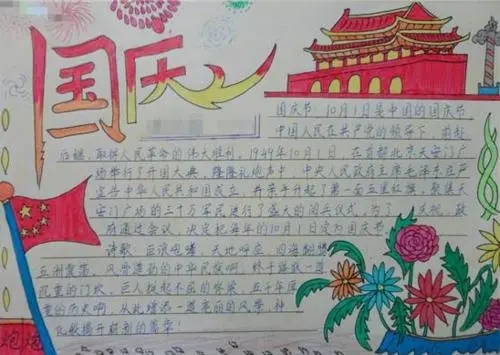 国庆
国庆节:10月1日是中国的国庆节
中国人民在共产党的领导下,前赴
后继,取得人民革命的伟大胜利,1949年10月1日,在首都北京天安门广
场举行了开国大典,隆隆礼炮声中,中央人民政府主席毛泽东庄严
宣告中华人民共和国成立,并亲手升起了第一面五星红旗,聚集天
安门广场的三十万军民进行了盛大的阅兵仪式,为了 庆祝,政
府通过会议,决定把每年的10月1日定为国庆节.
诗歌:巨浪咆哮 天地呼应 四海翻腾
五洲震荡,风骨遒劲的中华民族啊,终于踏破一道
沉重的门坎,巨人挺起不屈的脊梁,五十年厚
重的历史啊,从此增添一道亮丽的风景,神